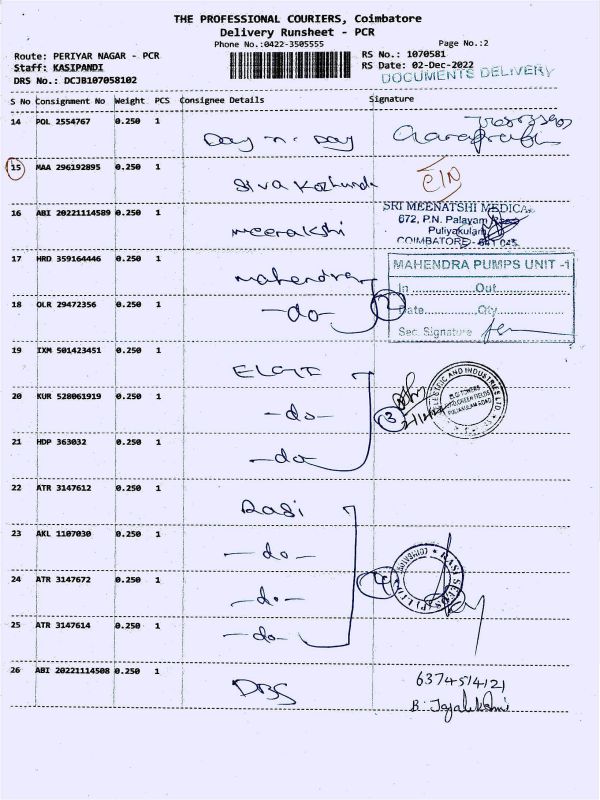 THE PROFESSIONAL COURIERS, Coimbatore
Delivery Runsheet - PCR
Phone No.:0422-3505555
Page No.:2
Route: PERIYAR NAGAR - PCR
RS No.: 1070581
Staff: KASIPANDI
RS Date: 02-Dec-2022
DRS No.: DCJB107058102
DOCUMENTS DELIVERY
S No Consignment No Weight PCS Consignee Details Signature
14 POL 2554767 0.250 1
Day n Day
15 MAA 296192895 0.250 1
Siva
16 ABI 20221114589 0.250 1
Meenakshi
SRI MEENATSHI MEDICA
672, P.N. Palayam
Puliyakulam
COIMBATORE - 641 045
17 HRD 359164446 0.250 1
Mahendra
MAHENDRA PUMPS UNIT -1
In Out
18 OLR 29472356 0.250 1
-do-
2
Date Qty
Sec. Signature
19 IXM 501423451 0.250 1
ELGI
20 KUR 528061919 0.250 1
-do-
3
21 HDP 363032 0.250 1
-do-
22 ATR 3147612 0.250 1
Rasi
23 AKL 1107030 0.250 1
-do-
24 ATR 3147672 0.250 1
-do-
4
RASI SEEDS (P) LTD
25 ATR 3147614 0.250 1
-do-
26 ABI 20221114508 0.250 1
DBS
6374514121